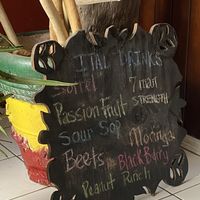 ITAL DRINKS
Sorrel 7 man
STRENGTH
Passion Fruit
Sour Sop
Moringa
Beets Black Burry
Peanut Punch